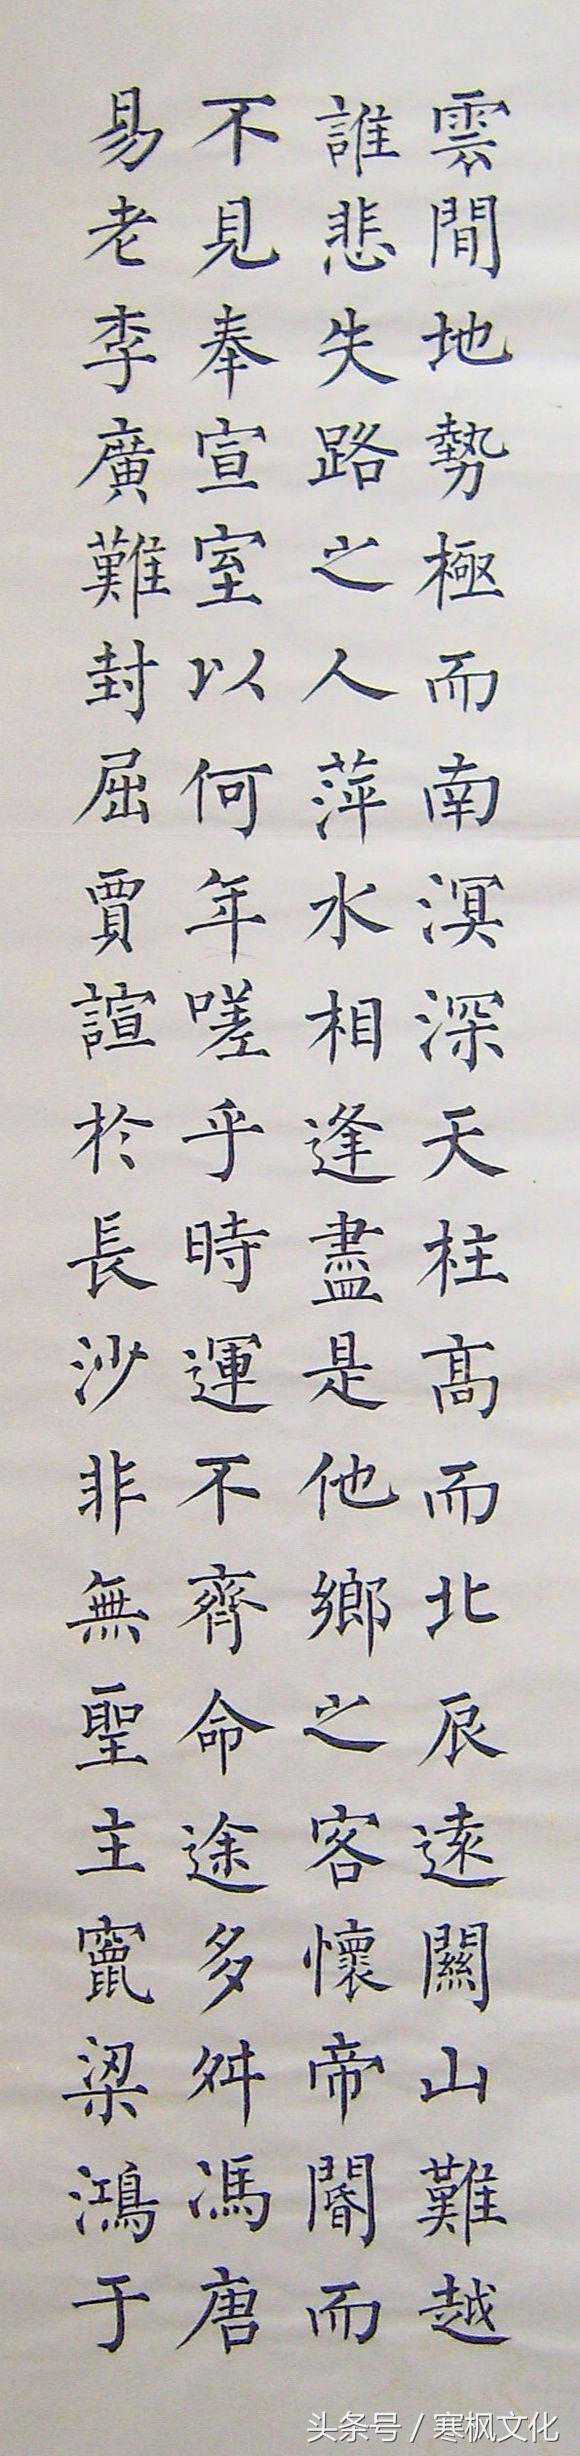 雲間地勢極而南溟深天柱高而北辰遠關山難越
誰悲失路之人萍水相逢盡是他鄉之客懷帝閽而
不見奉宣室以何年嗟乎時運不齊命途多舛馮唐
易老李廣難封屈賈誼於長沙非無聖主竄梁鴻于
头条号/寒枫文化